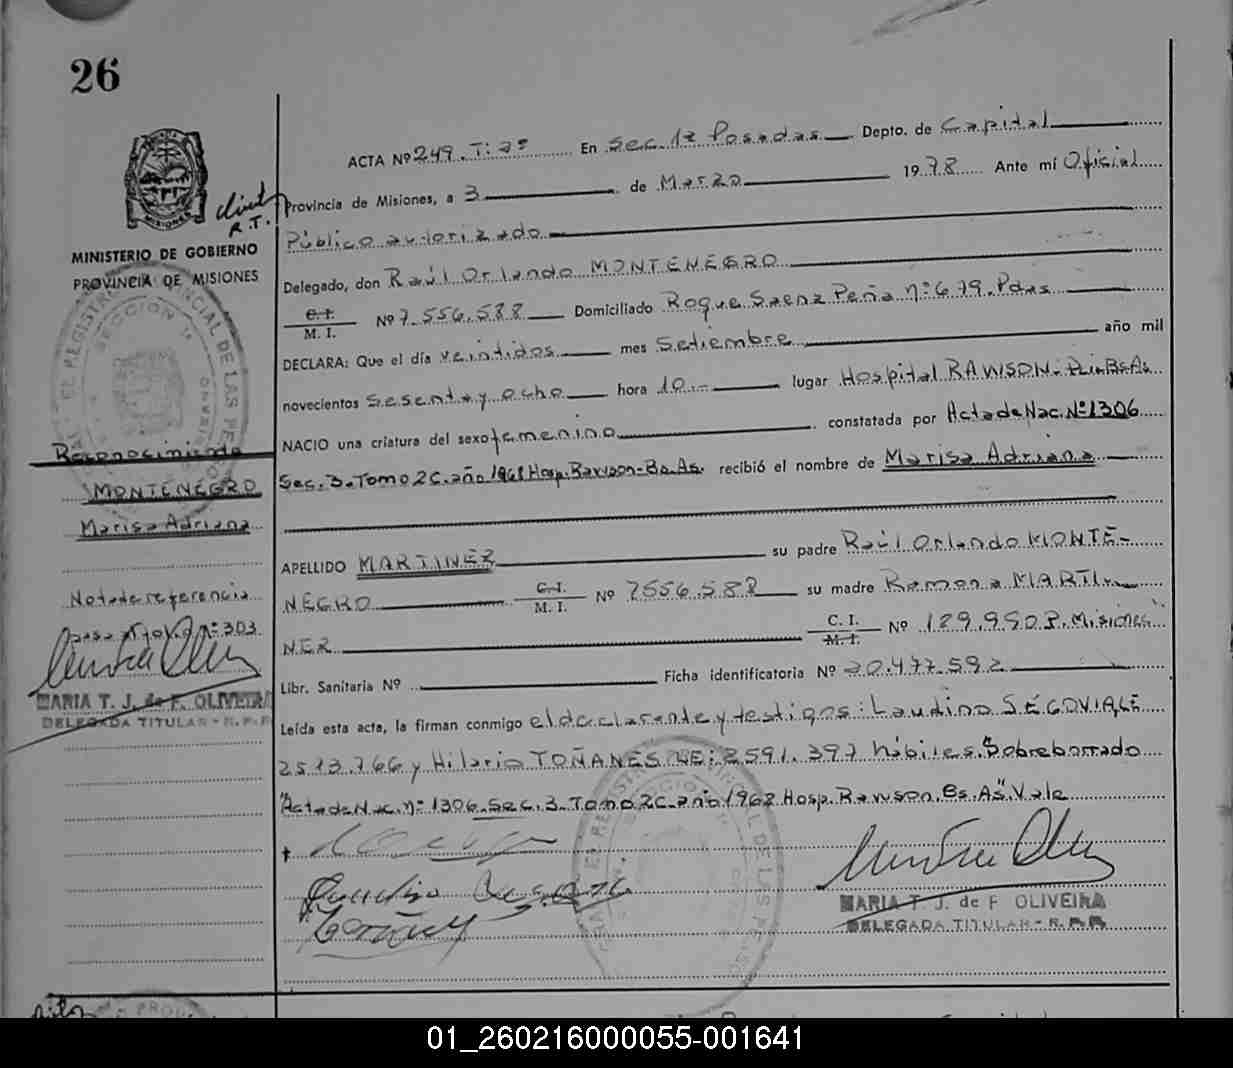 26
ACTA Nº 249. T: 2º En Sec. 1ª Posadas Depto. de Capital
Provincia de Misiones, a 3 de Marzo 1978 Ante mí Oficial
R.T.
Público autorizado
MINISTERIO DE GOBIERNO
PROVINCIA DE MISIONES
Delegado, don Raúl Orlando MONTENEGRO
C. I.
M. I. Nº 7.556.588 Domiciliado Roque Saenz Peña nº 679. Pdas
DECLARA: Que el día veintidos mes Setiembre año mil
novecientos sesenta y ocho hora 10.- lugar Hospital RAWSON-
NACIO una criatura del sexo femenino constatada por Acta de Nac. Nº 1306
Sec. 3. Tomo 2C. año 1968 Hosp. Rawson-Bs.As. recibió el nombre de Marisa Adriana
Reconocimiento
MONTENEGRO
Marisa Adriana
Nota de referencia
pasa nº 303
APELLIDO MARTINEZ su padre Raúl Orlando MONTE-
NEGRO C. I. M. I. Nº 7556.588 su madre Ramona MARTI-
NEZ C. I. M. I. Nº 189.990 P. Misiones
Libr. Sanitaria Nº Ficha identificatoria Nº 20.477.592
MARIA T. J. de F. OLIVEIRA
DELEGADA TITULAR - R. P. P.
Leída esta acta, la firman conmigo el declarante y testigos: Laudino SEGOVIA, LE
2513.766 y Hilario TOÑANES LE: 2591.397 hábiles. Sobreborrado
"Acta de Nac. nº 1306. Sec. 3. Tomo 2C. año 1968 Hosp. Rawson. Bs. As." Vale
MARIA T. J. de F. OLIVEIRA
DELEGADA TITULAR - R. P. P.
01_260216000055-001641